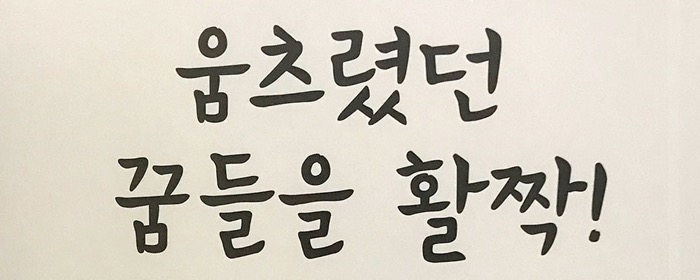 움츠렸던
꿈들을 활짝!